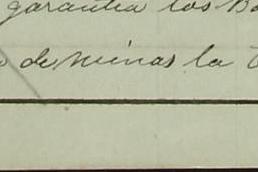 garantia los Ba
de minas la